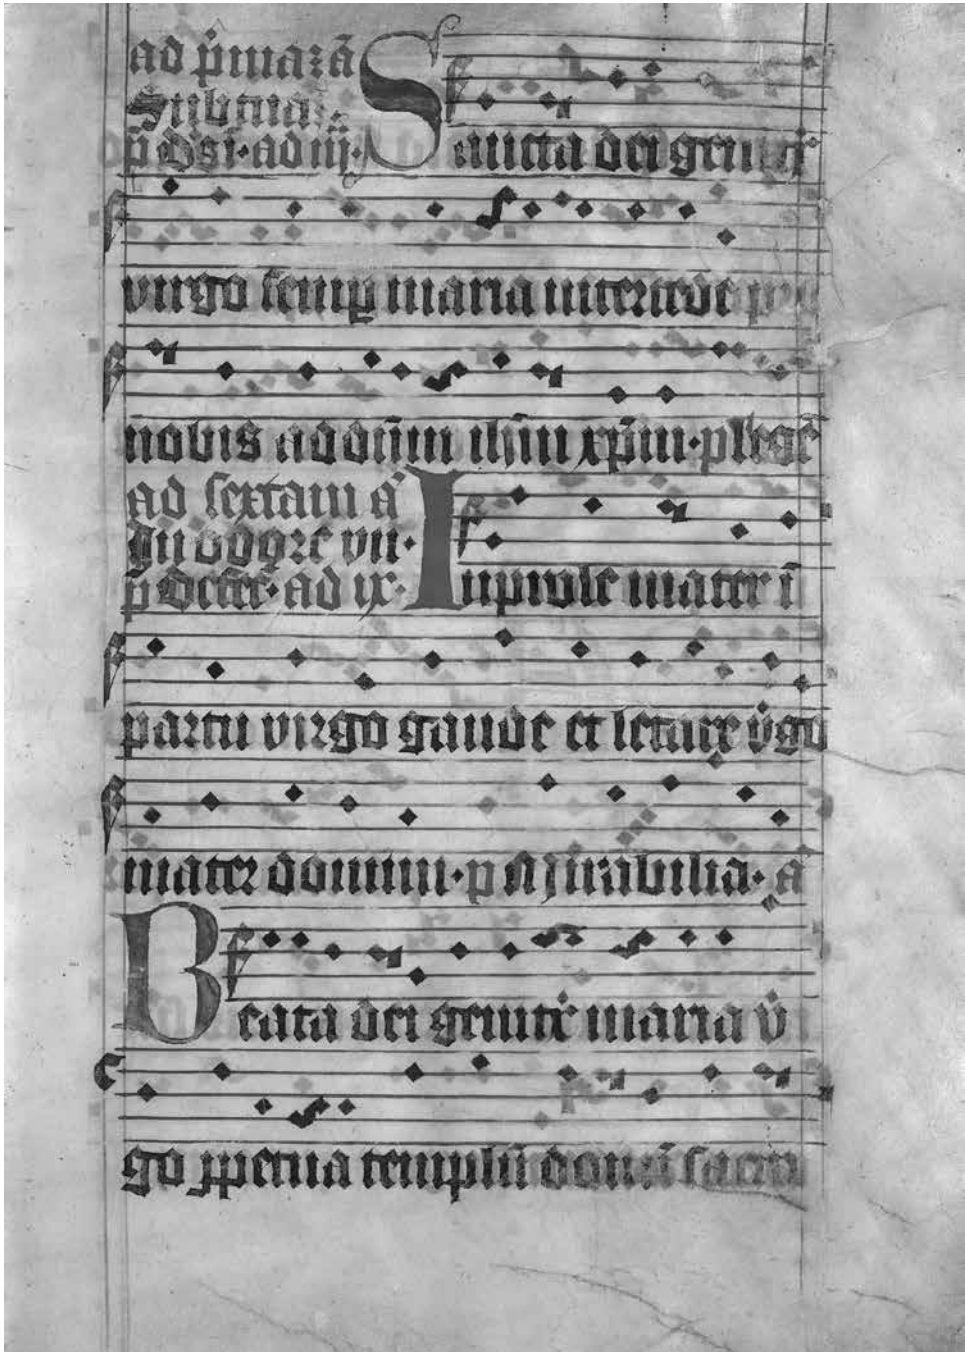 ad p̄maʒ ā
Sub tuā
p̄ ad iij· Sancta dei genit̄
virgo semꝑ maria intercede p
nobis ad dn̄m ih̄m xp̄m· p̄ lege
ad sextam ā
vii·
p̄ defec· ad ix· In prole mater ī
partu virgo gaude et letare v̄go
mater domini· p̄ Mirabilia· ā
Beata dei genitꝛ̄ maria v̄
go ꝑpetua templū domī sacra